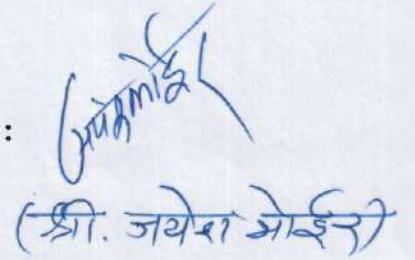 :
(श्री. जयेश भोईर)